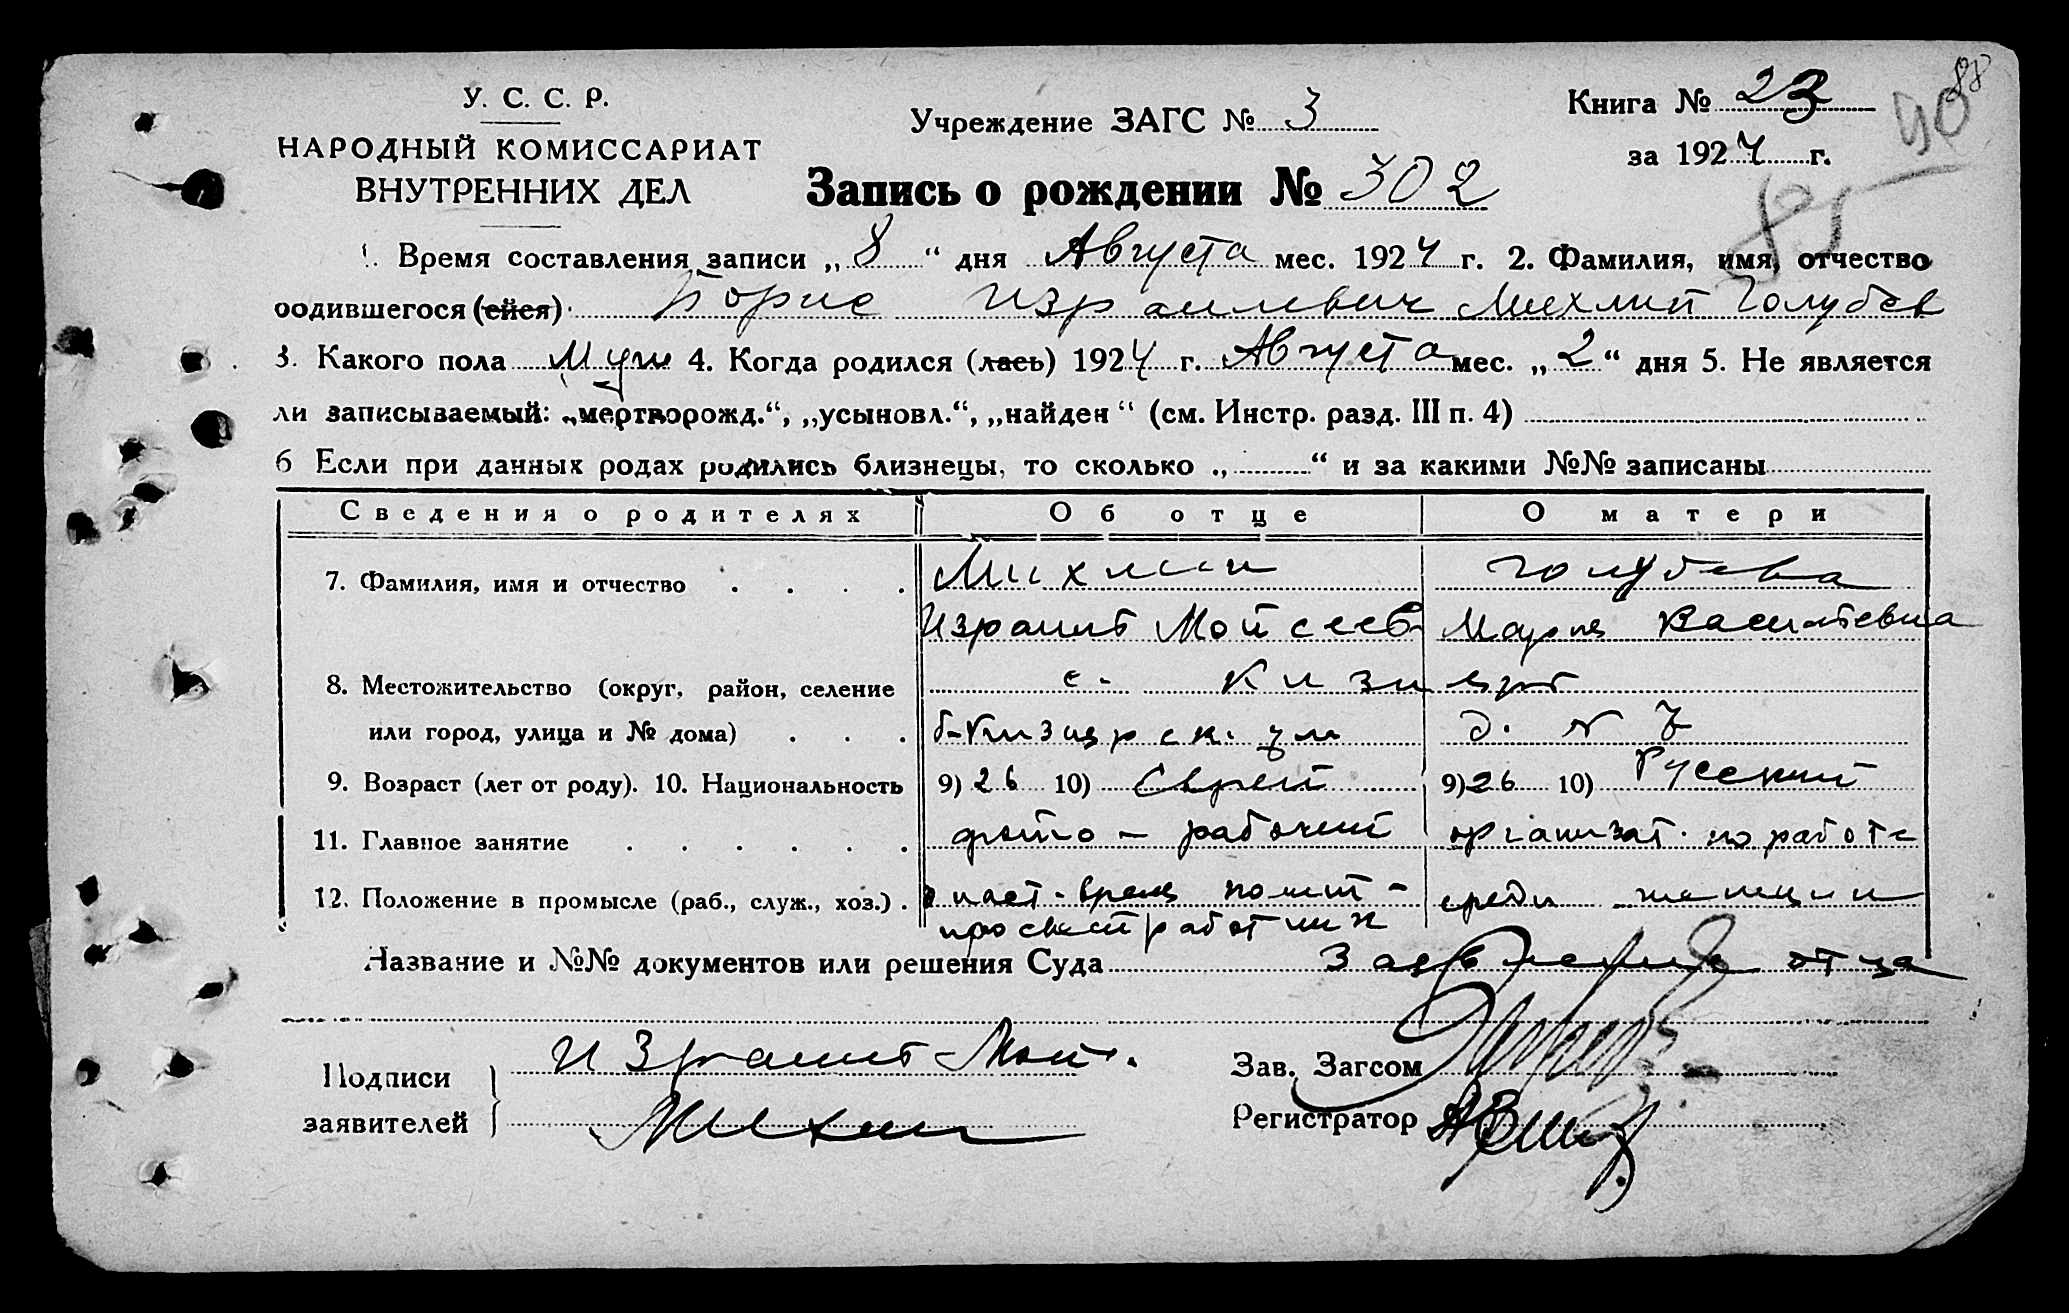 88
У. С. С. Р.
НАРОДНЫЙ КОМИССАРИАТ
ВНУТРЕННИХ ДЕЛ
Учреждение ЗАГС № 3
Книга № 23
за 1924 г.
90
85
Запись о рождении № 302
1. Время составления записи „8“ дня Августа мес. 1924 г. 2. Фамилия, имя, отчество
родившегося (ейся) Борис Израилевич Михлин Голубев
3. Какого пола Муж 4. Когда родился (лась) 1924 г. Августа мес. „2“ дня 5. Не является
ли записываемый: „мертворожд.“, „усыновл.“, „найден“ (см. Инстр. разд. III п. 4)
6 Если при данных родах родились близнецы, то сколько „ “ и за какими №№ записаны
Сведения о родителях Об отце О матери
7. Фамилия, имя и отчество Михлин Голубева
Израиль Мойсеев Мария Васильевна
8. Местожительство (округ, район, селение с.
или город, улица и № дома) д. № 7
9. Возраст (лет от роду). 10. Национальность 9) 26 10) Еврей 9) 26 10) Русский
11. Главное занятие рабочий организат. по работе
12. Положение в промысле (раб., служ., хоз.) наст. время полит- среди женщин
просвет работник
Название и №№ документов или решения Суда Заявление отца
Подписи заявителей Израиль Мой.
Михлин
Зав. Загсом
Регистратор